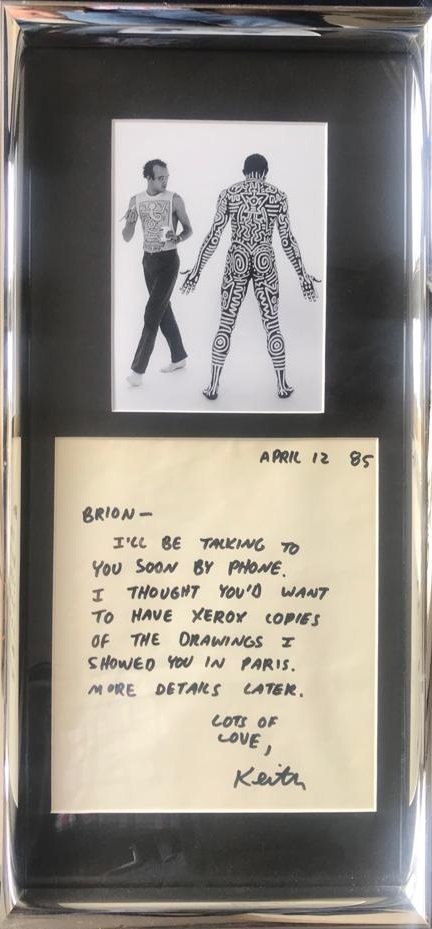 APRIL 12 85
BRION—
I'LL BE TALKING TO
YOU SOON BY PHONE.
I THOUGHT YOU'D WANT
TO HAVE XEROX COPIES
OF THE DRAWINGS I
SHOWED YOU IN PARIS.
MORE DETAILS LATER.
LOTS OF
LOVE,
Keith